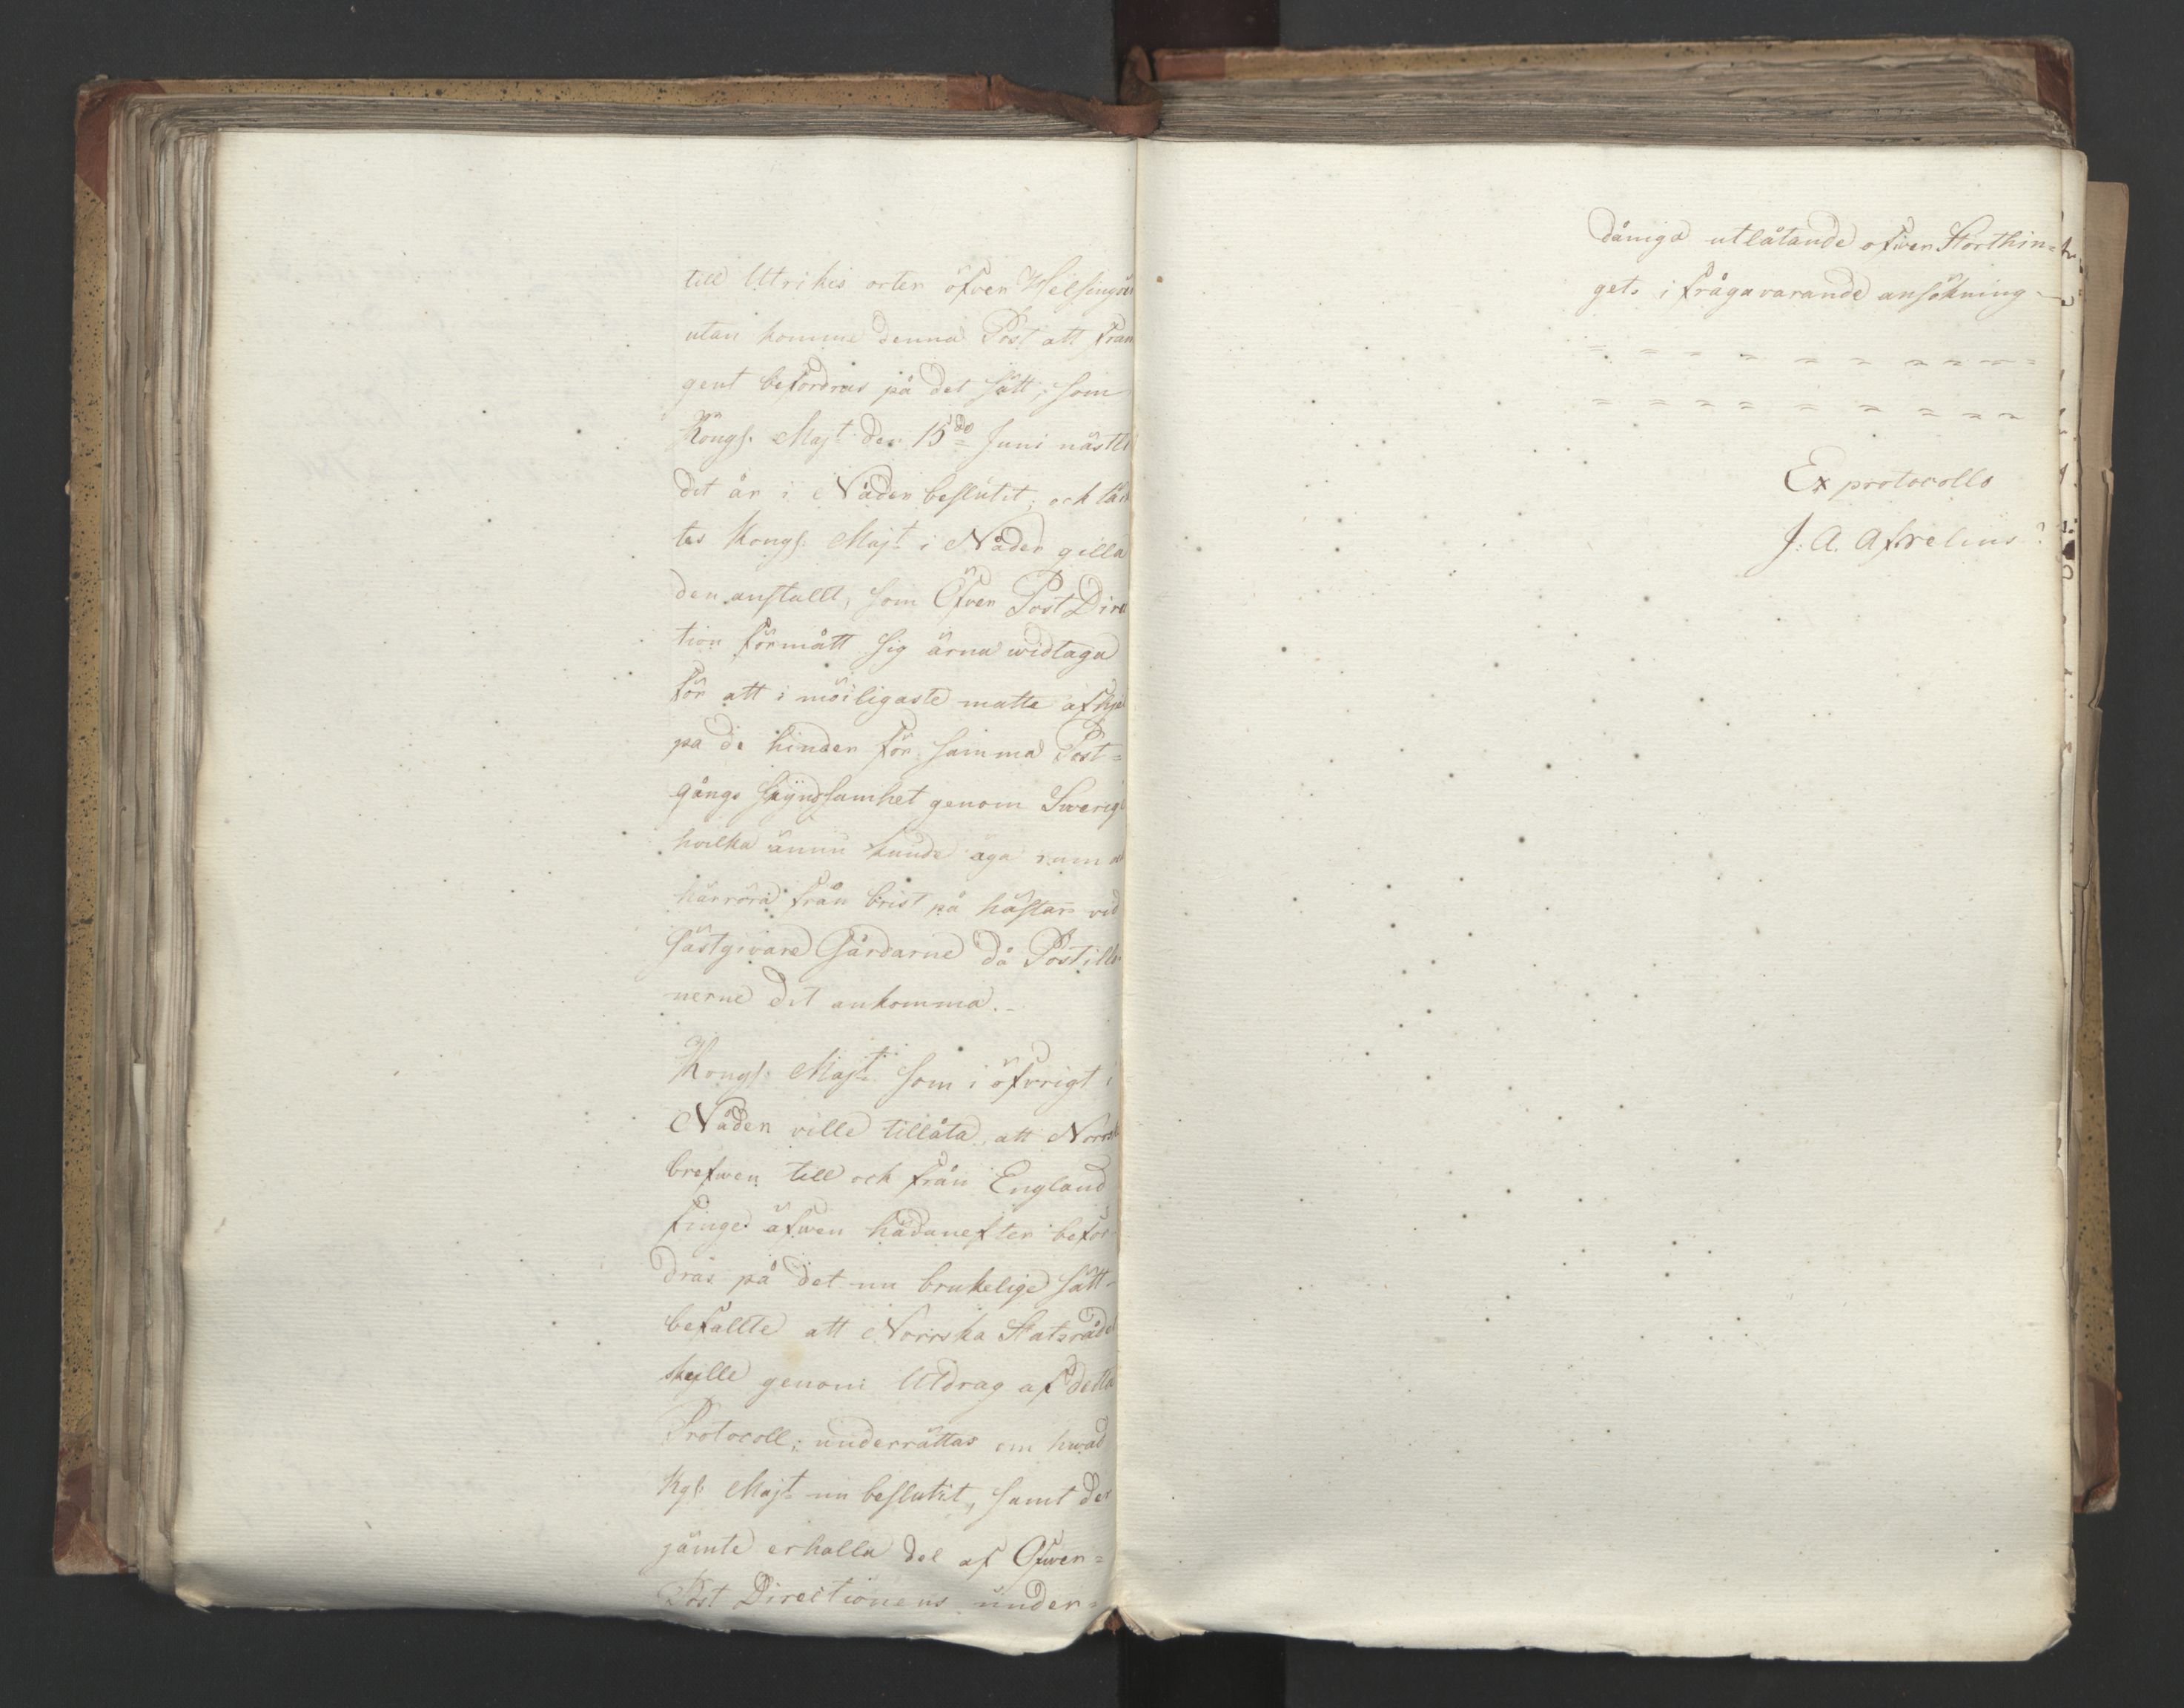 till Utrikes orter öfver Helsingör
utan komme denna Post att fram
gent befordras på det sätt, som
Kongl. Majt den 15de Juni nästl
det år i Nåder beslutit, och lä
tes Kongl. Majt i Nåder gilla
den anstallt, som Öfver Post Direc
tion förmått sig ärna widtaga
för att i möiligaste matto afhjel
pa de hinder för samma Post=
gångs skyndsamhet genom Swerige
hvilka ännu kunde äga rum och
härröra från brist på hästar vid
Gästgivare Gårdarne då Postillo
nerne dit ankomma.
Kongl. Majt som i öfvrigt i
Nåder ville tillåta, att Norrska
brefwen till och från England
finge äfwen hädanefter befor-
dras på det nu brukelige sätt
befallte att Norrska Statsrådet
skulle genom Utdrag af detta
Protocoll, underrättas om hwad
Kgl. Majt nu beslutit, samt der
jämte erhalla del af Ofwer=
Post Directionens under=
dåniga utlåtande ofwer Storthin=
gets i frågavarande ansökning
= = = = = = = = = =
= = = = = = = = = =
Ex protocollo
J. A. Afzelius